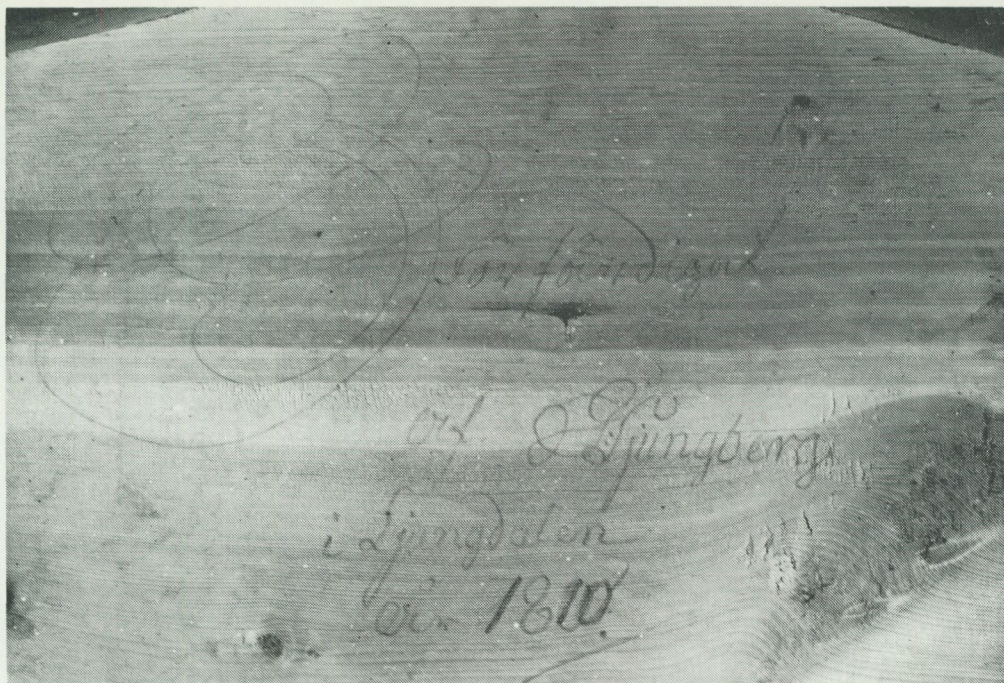 Förfärdigat
af O Ljungberg
i Ljungdalen
år 1810